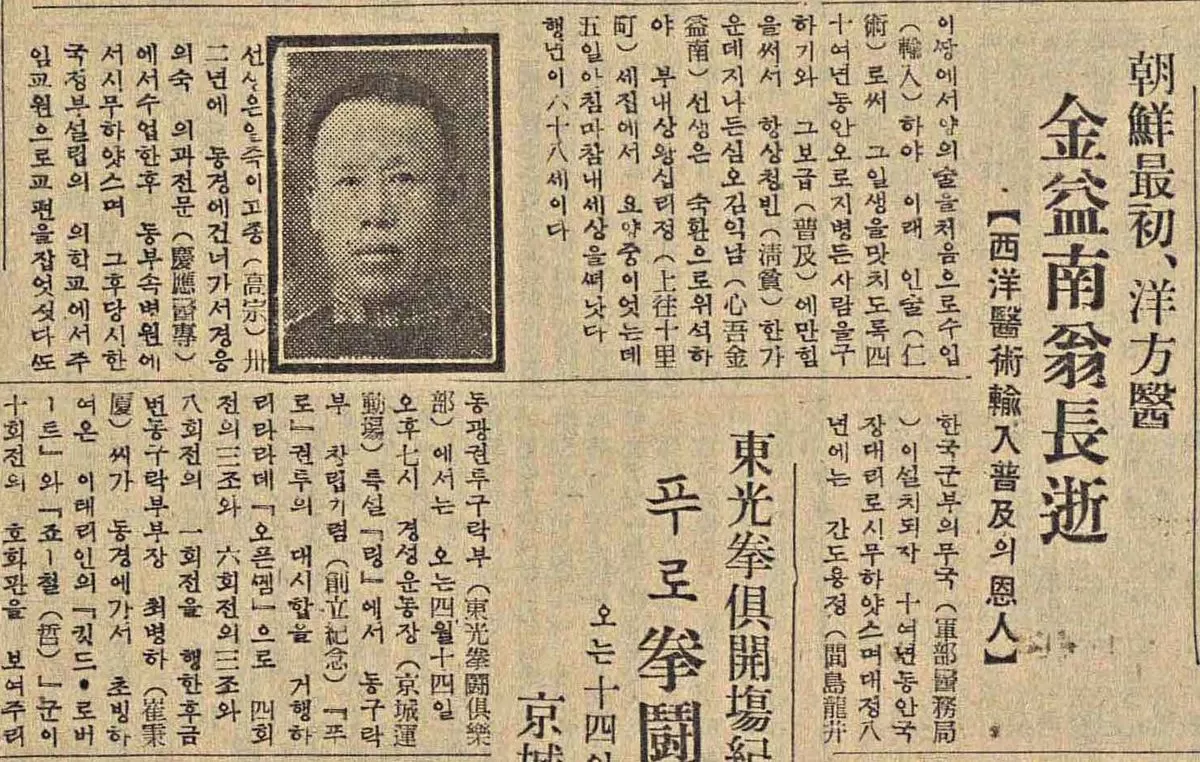 朝鮮最初、洋方醫
金益南翁長逝
【西洋醫術輸入普及의恩人】
이땅에서양의술을처음으로수입
(輸入)하야 이래 인술(仁
術)로써 그일생을맛치도록四
十여년동안오로지병든사람을구
하기와 그보급(普及)에만힘
을써서 항상청빈(淸貧)한가
운데지나든심오김익남(心吾金
益南)선생은 숙환으로위석하
야 부내상왕십리정(上往十里
町)세집에서 요양중이엇는데
五일아침마참내세상을떠낫다
행년이六十八세이다
선생은일즉이고종(高宗)卅
二년에 동경에건너가서경응
의숙 의과전문(慶應醫專)
에서수업한후 동부속병원에
서시무하얏스며 그후당시한
국정부설립의 의학교에서주
임교원으로교편을잡엇섯다 또
한국군부의무국(軍部醫務局
)이설치되자 十여년동안국
장대리로시무하얏스며대정八
년에는 간도용정(間島龍井
東光拳俱開場紀
푸로拳鬪
오는十四일
京城
동광권투구락부(東光拳鬪俱樂
部)에서는 오는四월十四일
오후七시 경성운동장(京城運
動場)특설『링』에서 동구락
부 창립기렴(創立紀念)『푸
로』권투의 대시합을 거행하
리라는데『오픈껨』으로 四회
전의三조와 六회전의三조와
八회전의 一회전을 행한후금
번동구락부부장 최병하(崔秉
廈)씨가 동경에가서 초빙하
여온 이태리인의『낏드•로버
ー트』와『죠ー철(哲)』군이
十회전의 호화판을 보여주리